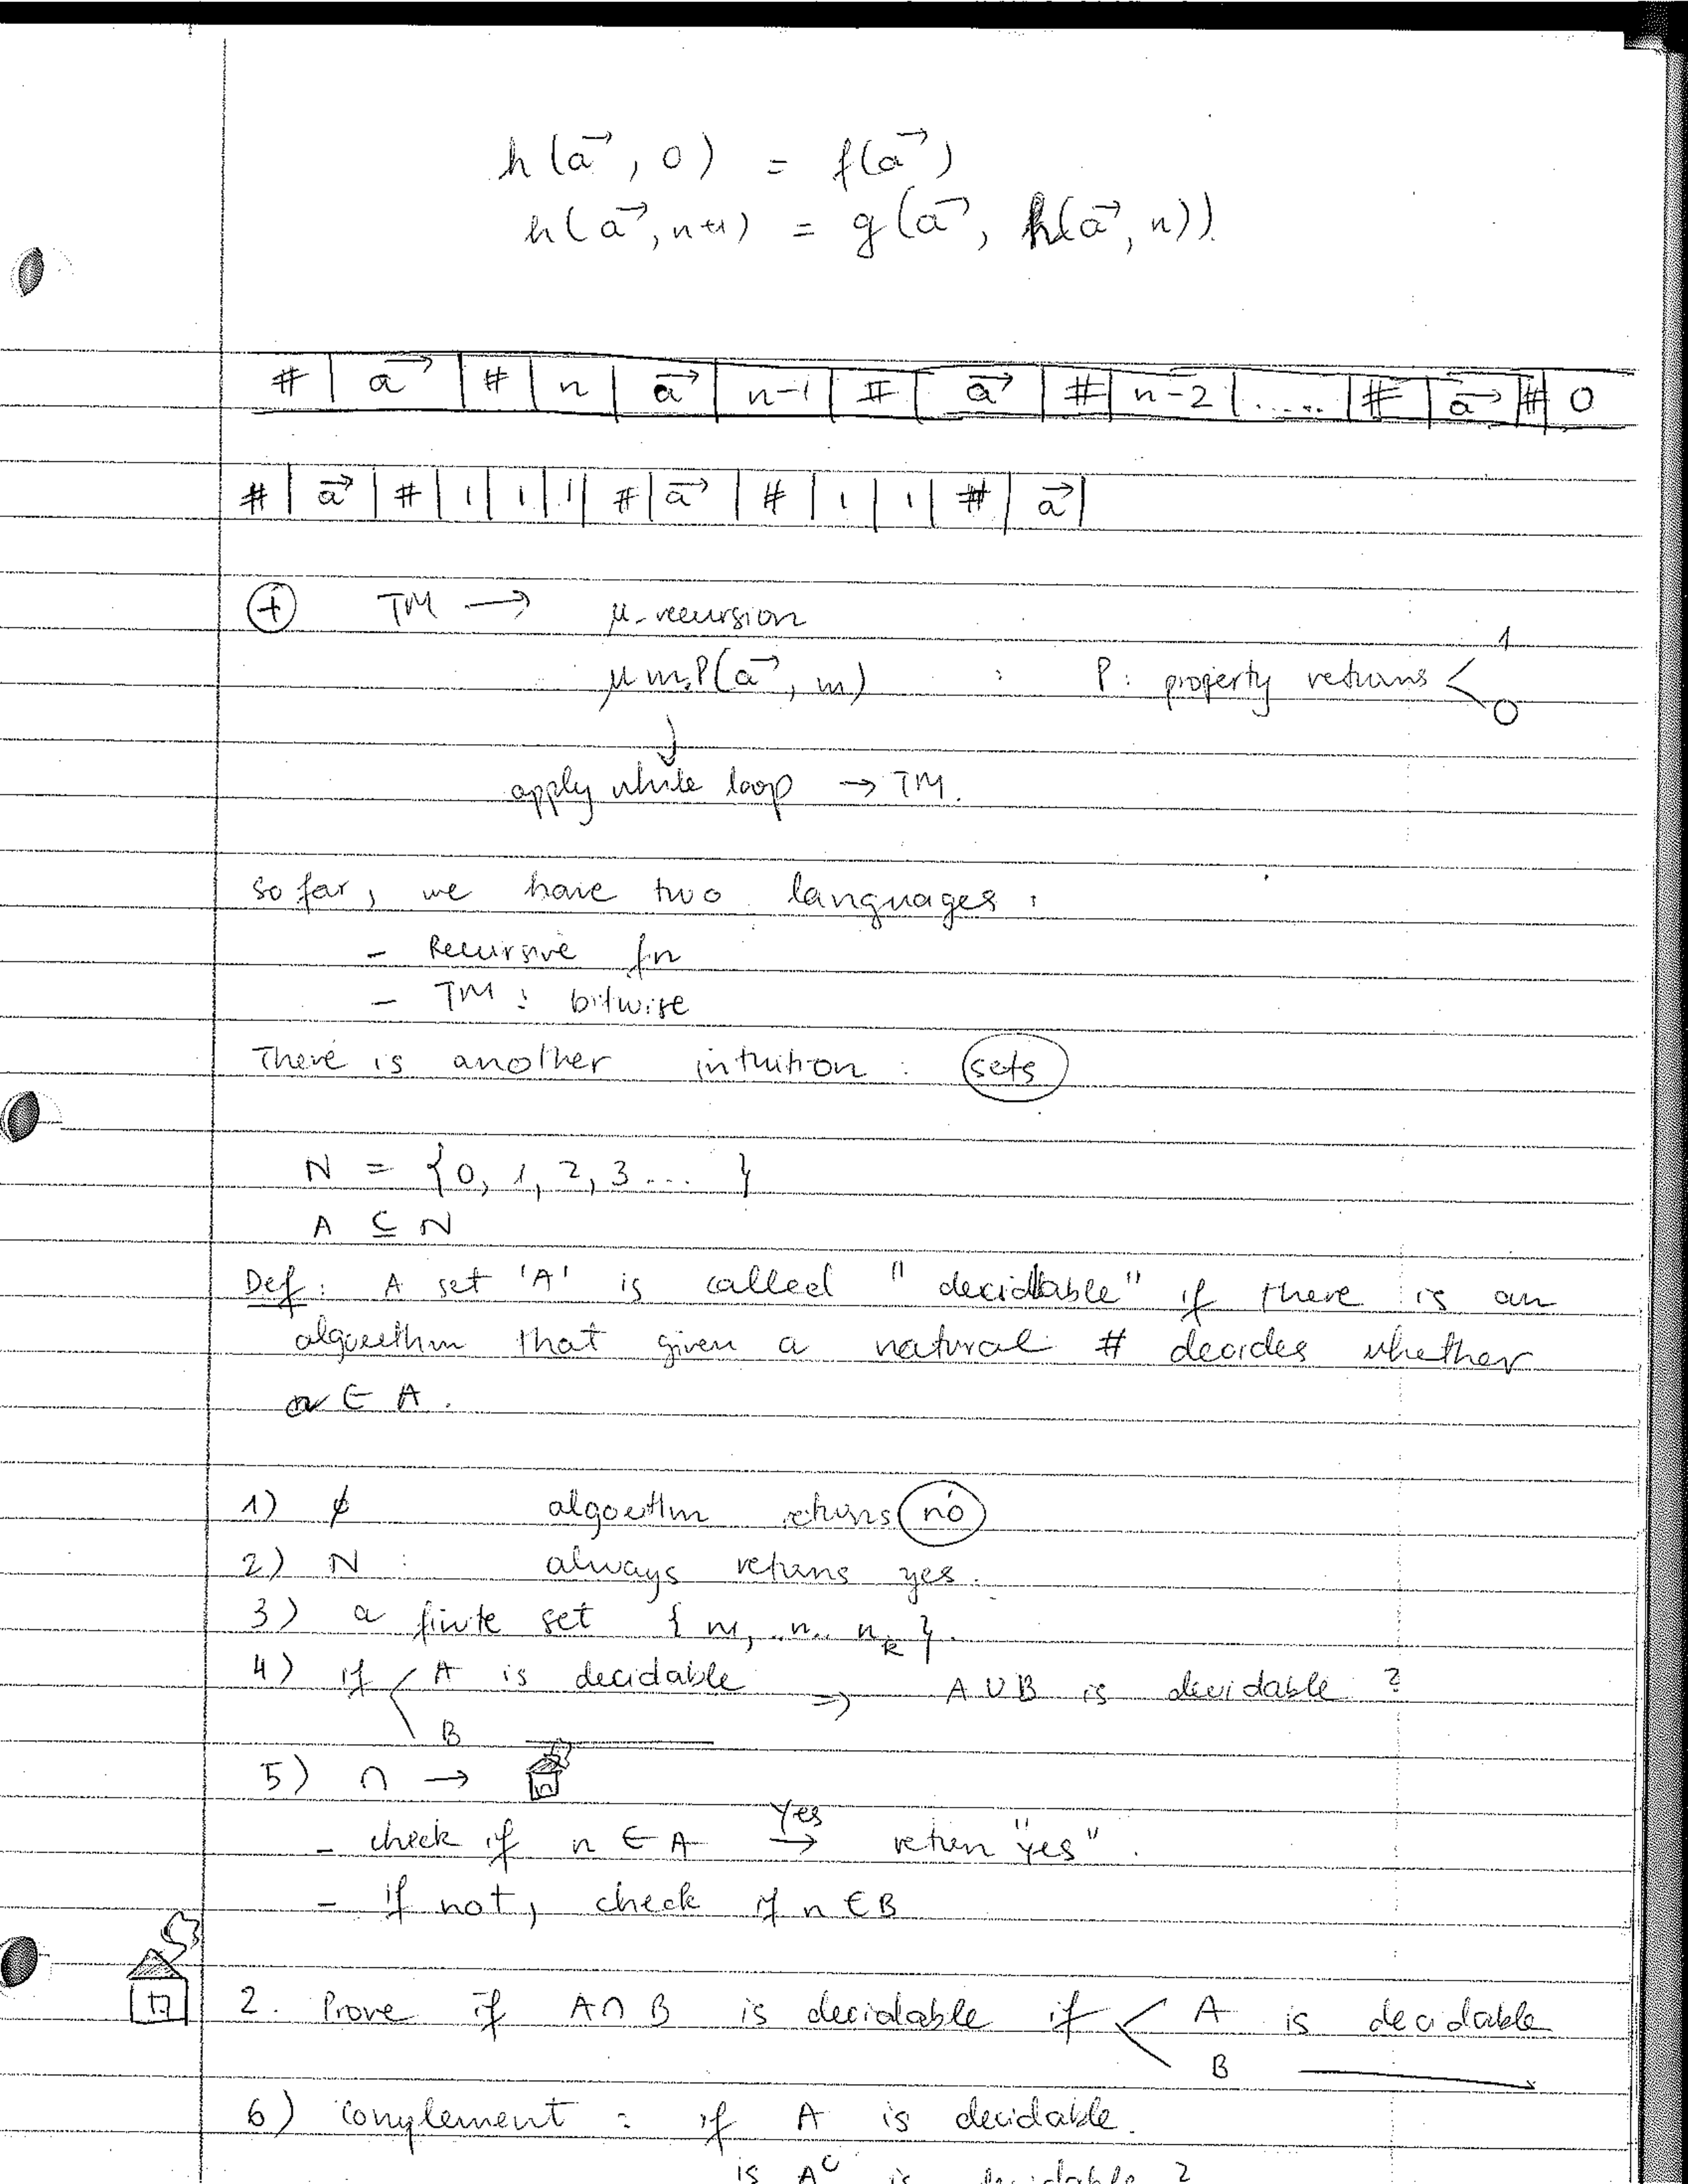 h(a⃗, 0) = f(a⃗)
h(a⃗, n+1) = g(a⃗, h(a⃗, n))
# | a⃗ | # | n | a⃗ | n-1 | # | a⃗ | # | n-2 | ..... | # | a⃗ | # | 0
# | a⃗ | # | 1 | 1 | 1 | # | a⃗ | # | 1 | 1 | # | a⃗ |
⊕ TM → μ-recursion
μm,P(a⃗, m) : P: property returns < 1 0
↓
apply while loop → TM.
So far, we have two languages:
- Recursive fn
- TM: bitwise
There is another intuition: sets
N = {0, 1, 2, 3 ... }
A ⊆ N
Def: A set 'A' is called "decidable" if there is an
algorithm that given a natural # decides whether
∈ A.
1) ϕ algorithm returns no
2) N : always returns yes.
3) a finite set { n₁, ..n.. nₖ }.
4) if < A is decidable ⇒ A ∪ B is decidable ?
B ———
5) ∩ →
- check if n ∈ A Yes → return "yes".
- if not, check if n ∈ B
2. Prove if A ∩ B is decidable if < A is decidable
B ———
6) Complement : if A is decidable.
is Aᶜ is decidable ?